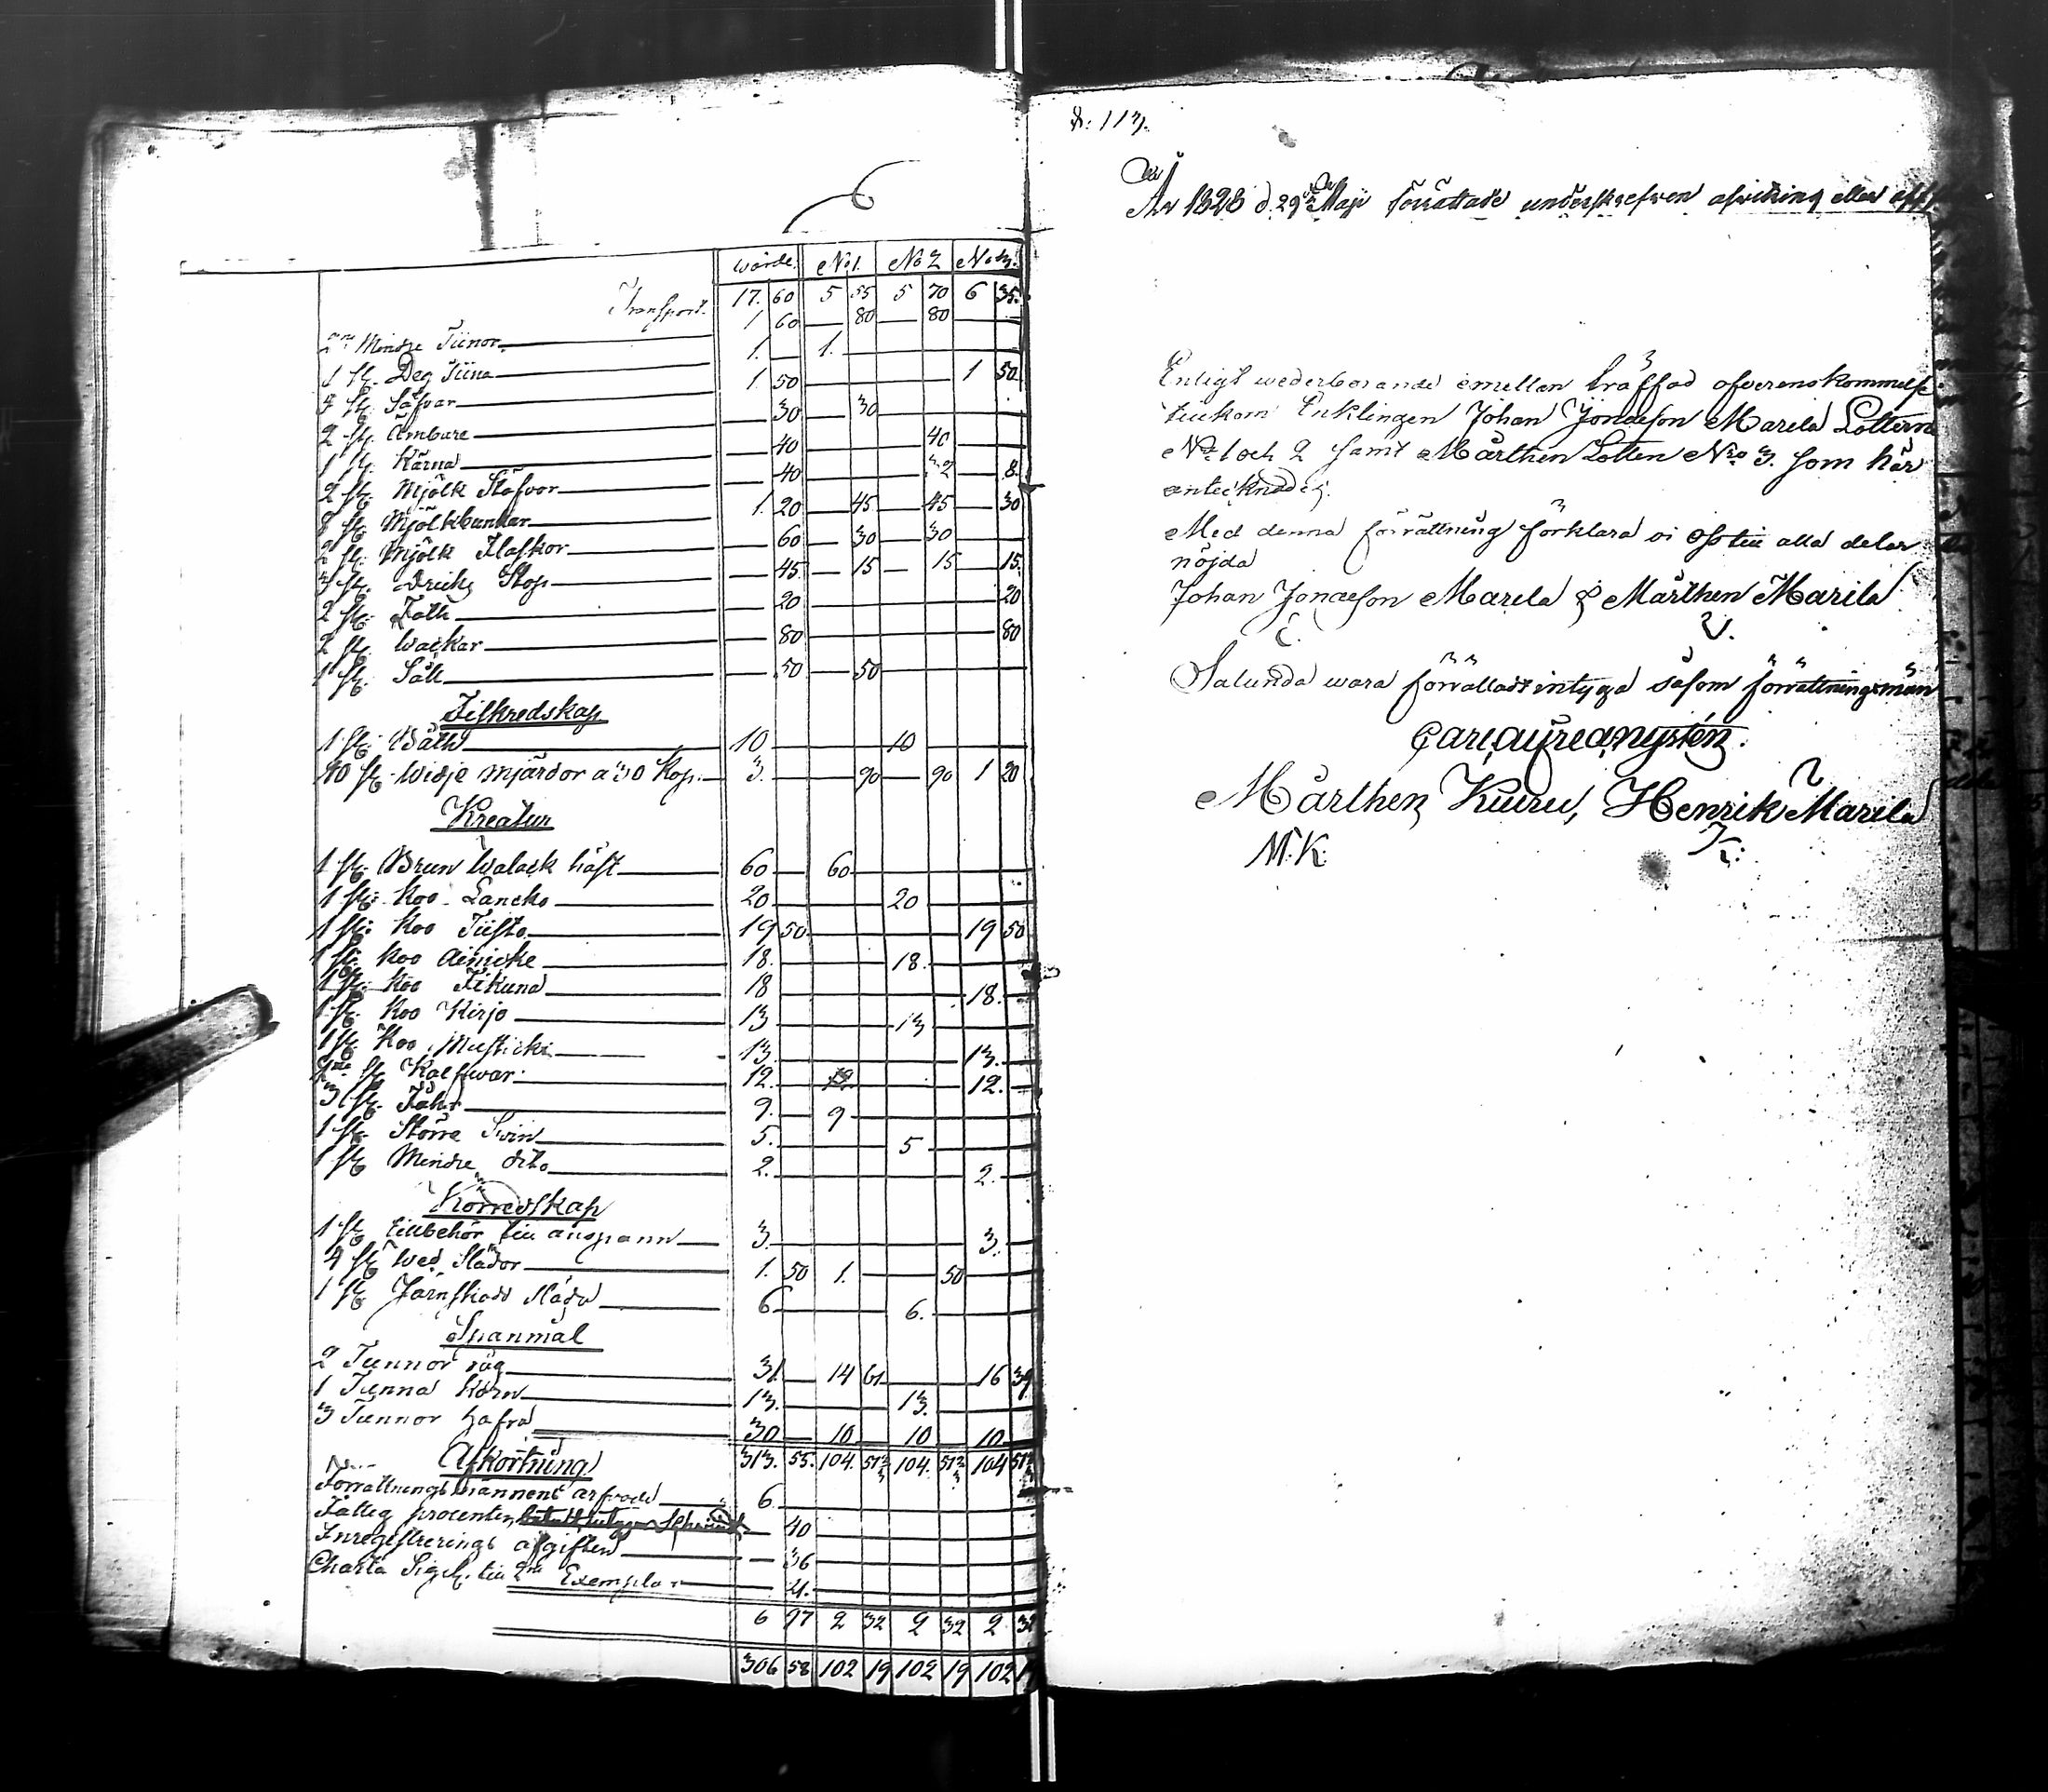 wärde. No 1. No 2 No 3.
Transport. 17. 60 5 55 5 70 6 35.
2ne Mindre Tiinor 1 60 — 80 — 80
1 st. Deg Tiina 1. 1.
3 st. Såfvar 1. 50 1 50
2 st. Ämbare — 30 — 30
1 st. Kärna — 40 40
2 st. Mjölk Stäfvor — 40 32 — 8.
8 st. Mjölkbunkar 1. 20 — 45 — 45 — 30
2 st. Mjölk Flaskor — 60 — 30 — 30
3 st. Dricks Stop — 45. — 15 — 15 — 15.
2 st. Fath — 20 20
2 st. Wackar — 80 80
1 st. Såll — 50 — 50
Fiskredskap
1 st. Båth 10 10
10 st. Widje mjärdor a 30 Kop. 3. 90 — 90 1 20
Kreatur
1 st. Brun Walack häst 60 60
1 st. Koo Lancko 20 20
1 st. Koo Tiisto 19 50 19 50
1 st. Koo Ainicke 18. 18.
1 st. Koo Fikuna 18 18.
1 st. Koo Kirjo 13 13
1 st. Koo Musticki 13. 13.
2ne st. Kalfwar 12. 12.
3 st. Fåhr 9. 9
1 st. Större Svin 5. 5
1 st. Mindre dito 2. 2.
Körredskap
1 st. tillbehör till anspann 3. 3.
4 st. Wed Slädor 1. 50 1. 50
1 st. Järnskodd Släda 6 6.
Spanmål
2 Tunnor råg 31. 14 61 16 39
1 Tunna Korn 13. 13.
3 Tunnor hafra 30 10 10 10
313. 55. 104. 51 2/3 104. 51 2/3 104 51 2/3
Afkortning
Förrättningsmännens arfvode 6.
Fattig procenten — 40
Inregistrerings afgiften — 36
Charta Sig. till 2ne Exemplar — 21.
6 97 2 32 2 32 2 32
306 58 102 19 102 19 102 19
S: 113.
År 1828 d. 29 Maji förrättade underskrefven afwittring eller
Enligt wederbörandes emellan träffad öfverenskommelse
tillkom Enklingen Johan Jönsesson Marila Lotterne
No 1 och 2 samt Mårthen Lotten No 3. som här
antecknades.
Med denna förrättning förklara vi oss till alla delar
nöjda
Johan Jönsesson Marila & Mårthen Marila
Sålunda wara förrättadt intyga såsom förrättningsmän
Carl Alfred Nystén.
Mårthen Kuuru, Henrik Marila
M: K: